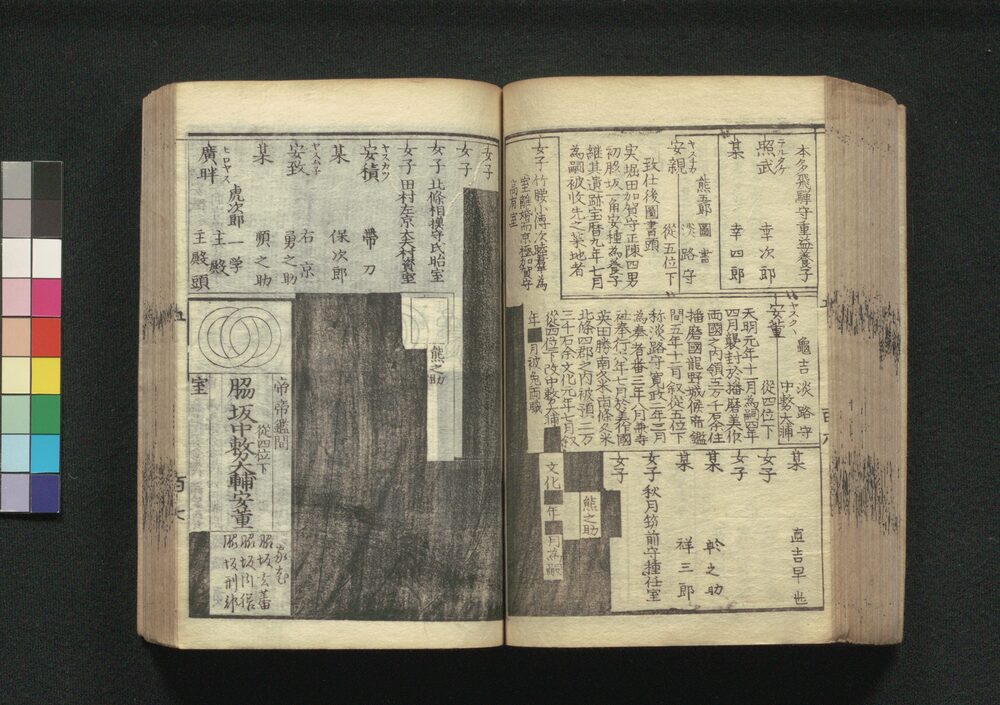 本多飛騨守重益養子
テルタケ
照武 幸次郎
某 幸四郎
熊五郎 圖書
ヤスチカ
安親 淡路守
從五位下
致仕後圖書頭
実堀田加賀守正陳四男
初脇坂一角安種為養子
継其遺跡宝暦九年七月
為嗣被收先之菜地者
女子 竹腰小傳次睦群為
室離婚而京極加賀守
高有室
ヤスタヽ
安董 亀吉 淡路守
中務大輔
從四位下
天明元年十月為嗣四年
四月襲封於播磨美作
両國之内領五万千石余住
播磨國龍野城候帝鑑
間五年十二月叙從五位下
称淡路守寛政二年三月
為奏者番三年八月兼寺
社奉行六年七月於美作國
英田勝南久米南條久米
北條四郡之内被預二万
三千石余文化元年七月叙
從四位下改中務大輔
年 月被免両職
某 直吉早世
女子
女子
某 幹之助
某 祥三郎
女子 秋月筑前守種任室
女子
熊之助
文化 年 月為嗣
女子
女子
女子 北條相模守氏昉室
女子 田村左京大夫村資室
ヤスカツ
安積 帶刀
某 保次郎
右京
ヤスムネ
安致 勇之助
某 順之助
虎次郎 一学
主殿
ヒロヤス
廣畔 主殿頭
熊之助
帝 帝鑑間
從四位下
脇坂中務大輔安董
室
家老
脇坂玄蕃
脇坂刑部